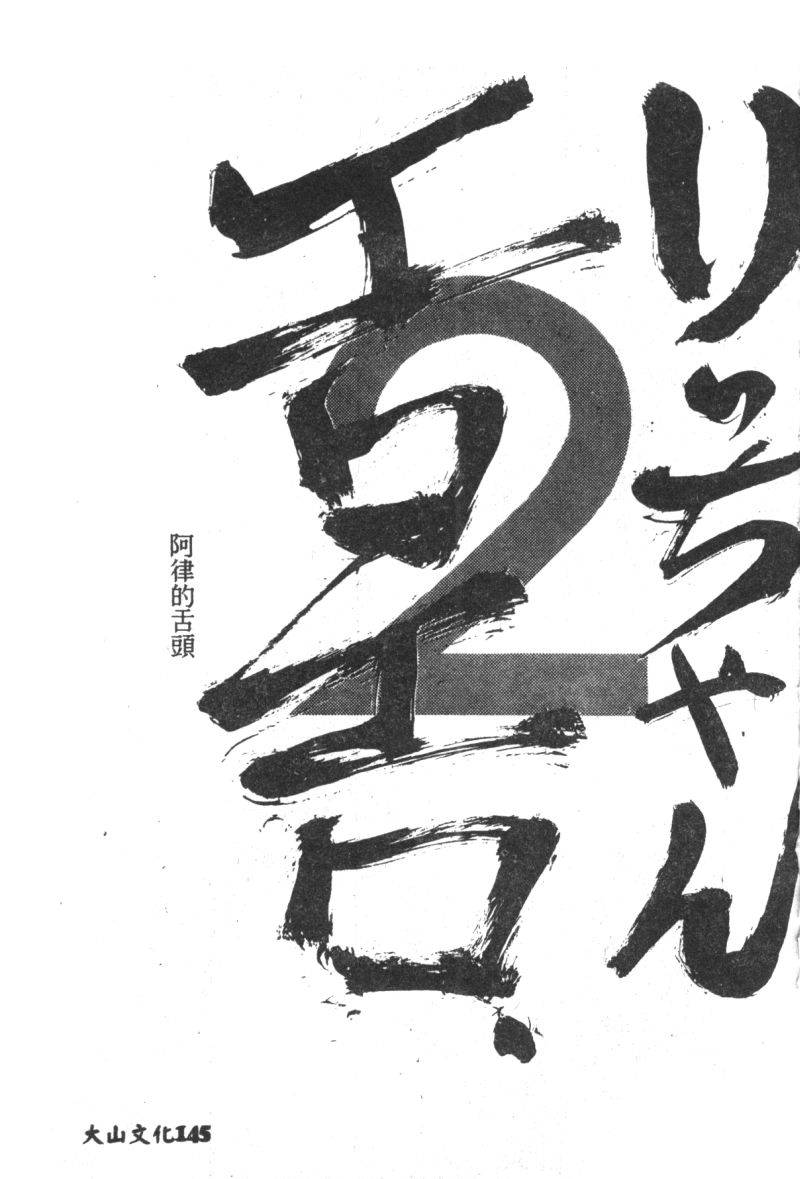 りっちゃん
舌舌
2
阿律的舌頭
大山文化145